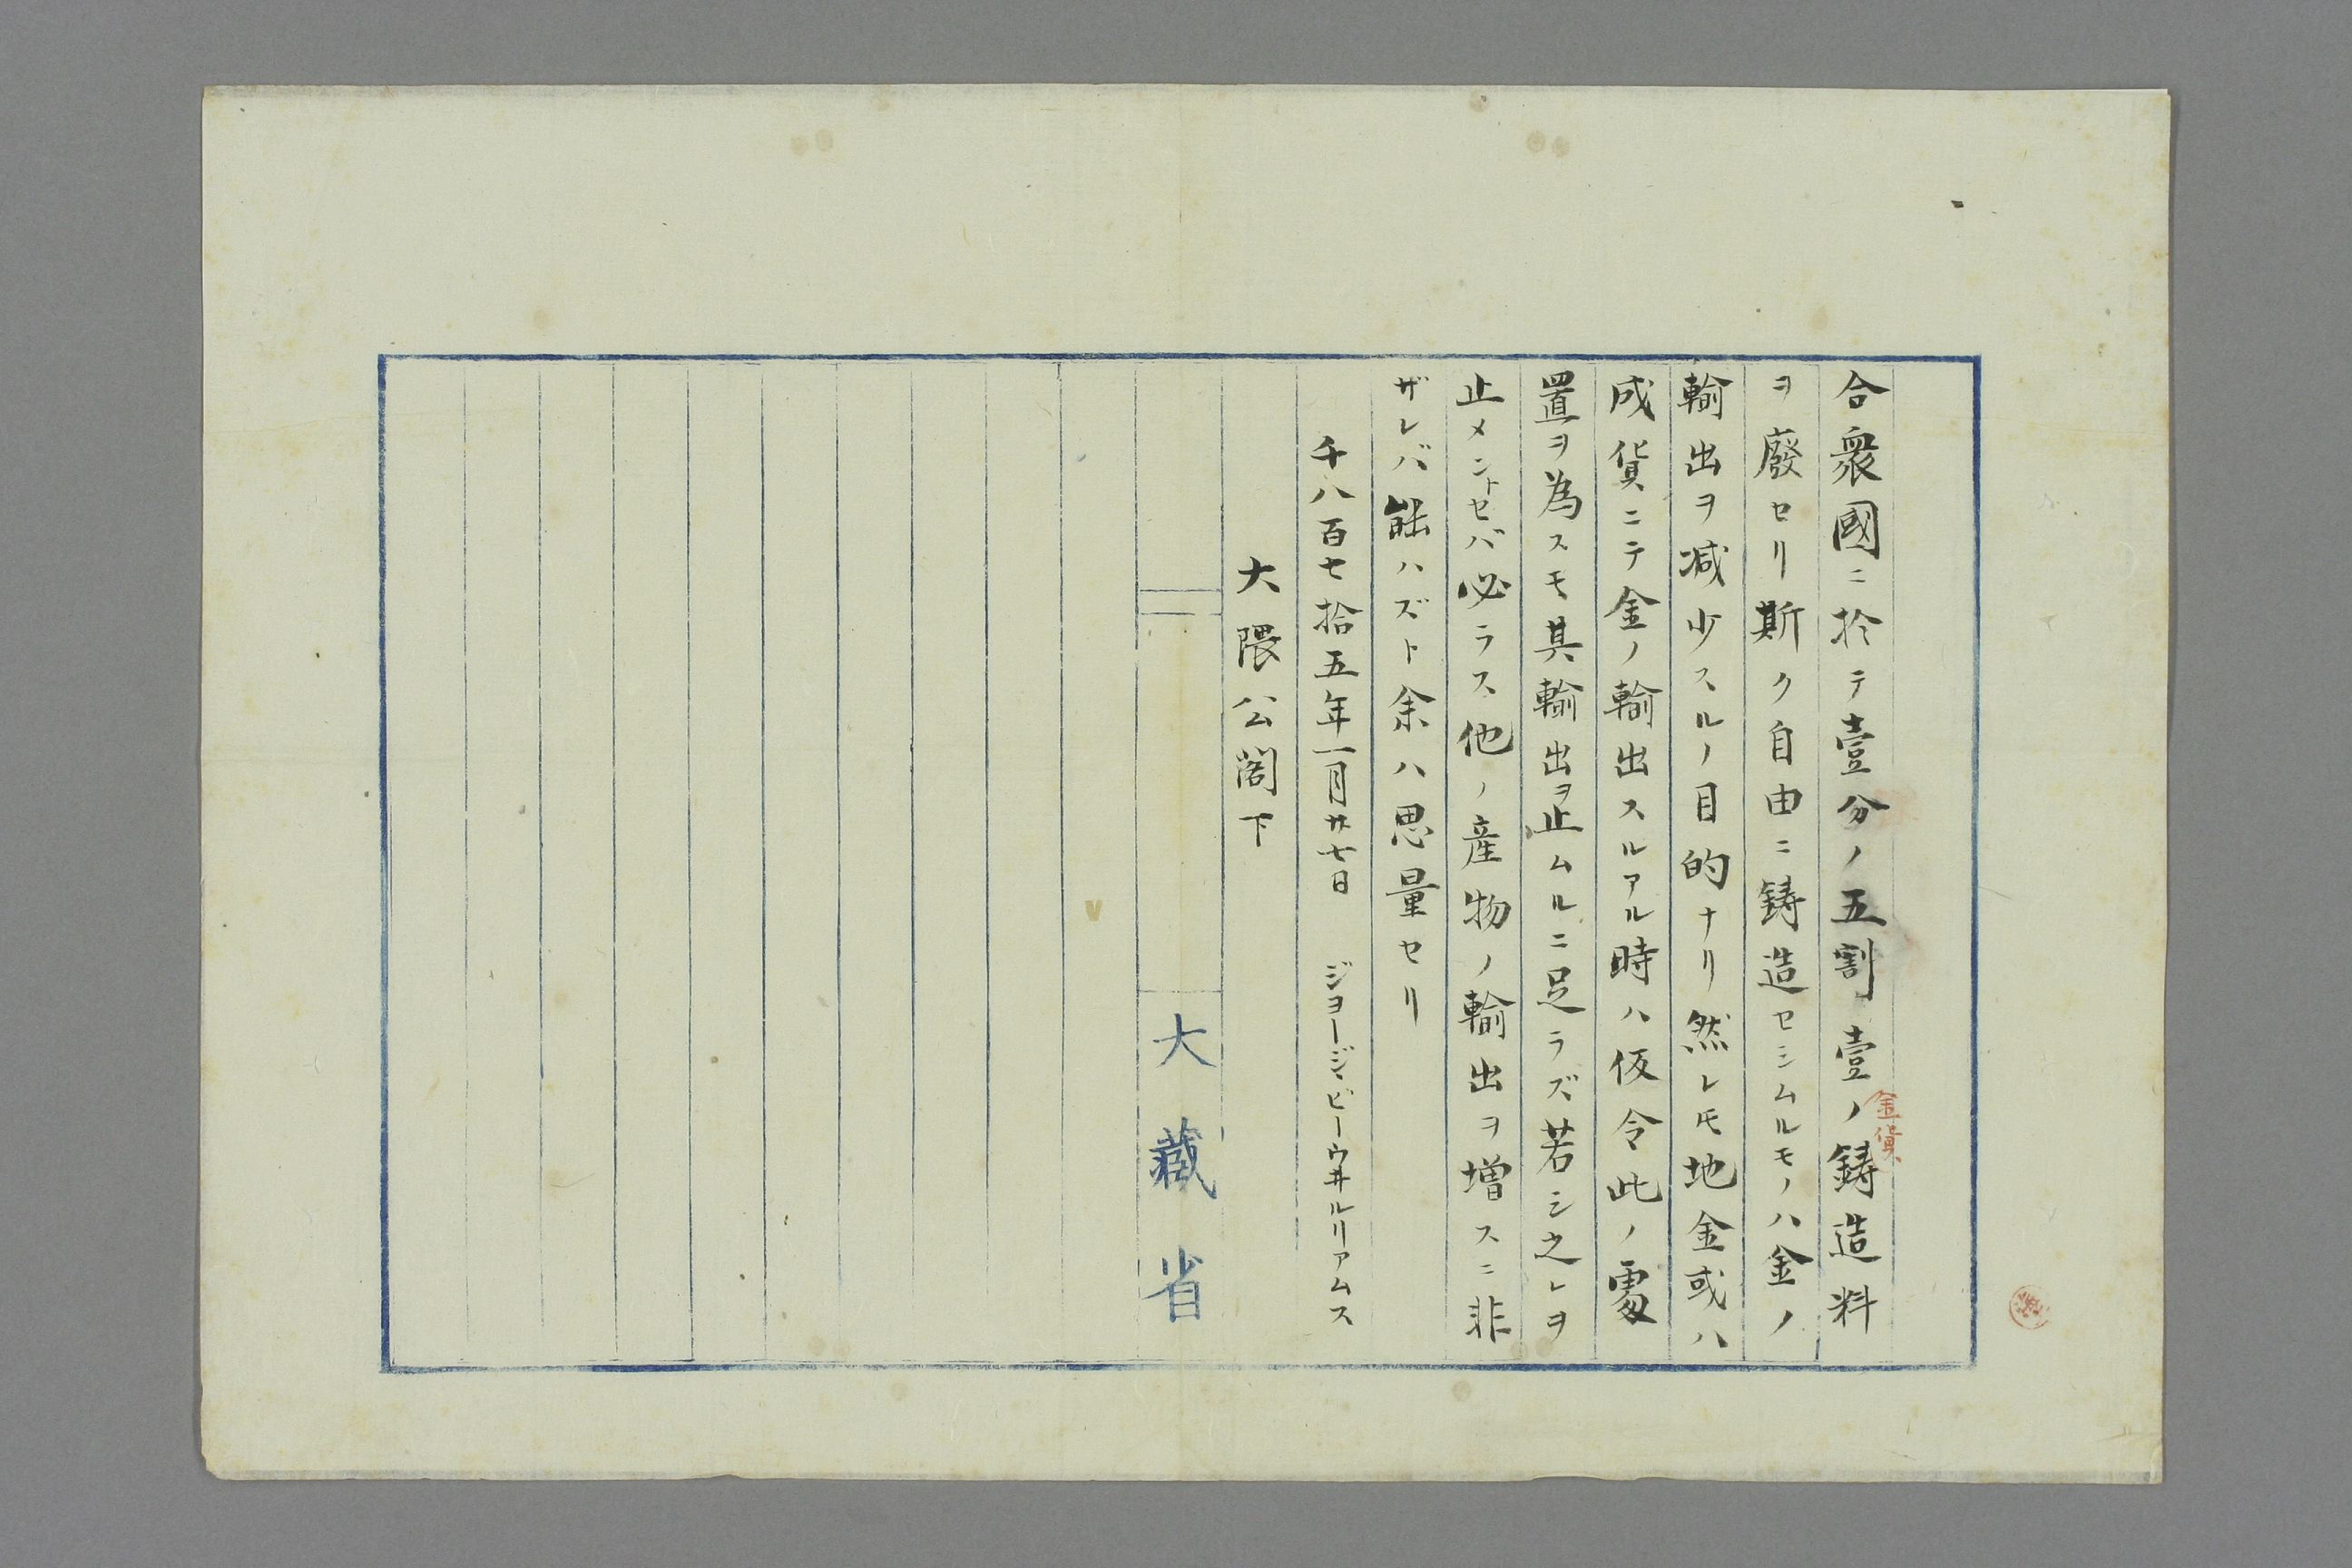 合衆國ニ於テ壹分ノ五割壹ノ鋳造料
金貨
ヲ廢セリ斯ク自由ニ鋳造セシムルモノハ金ノ
輸出ヲ減少スルノ目的ナリ然レ𪜈地金或ハ
成貨ニテ金ノ輸出スルアル時ハ仮令此ノ處
置ヲ為スモ其輸出ヲ止ムルニ足ラズ若シ之レヲ
止メントセバ必ラス他ノ産物ノ輸出ヲ増スニ非
ザレバ能ハズト余ハ思量セリ
千八百七拾五年一月廿七日 ジヨージ、ビーウヰルリアムス
大隈公閣下
大藏省